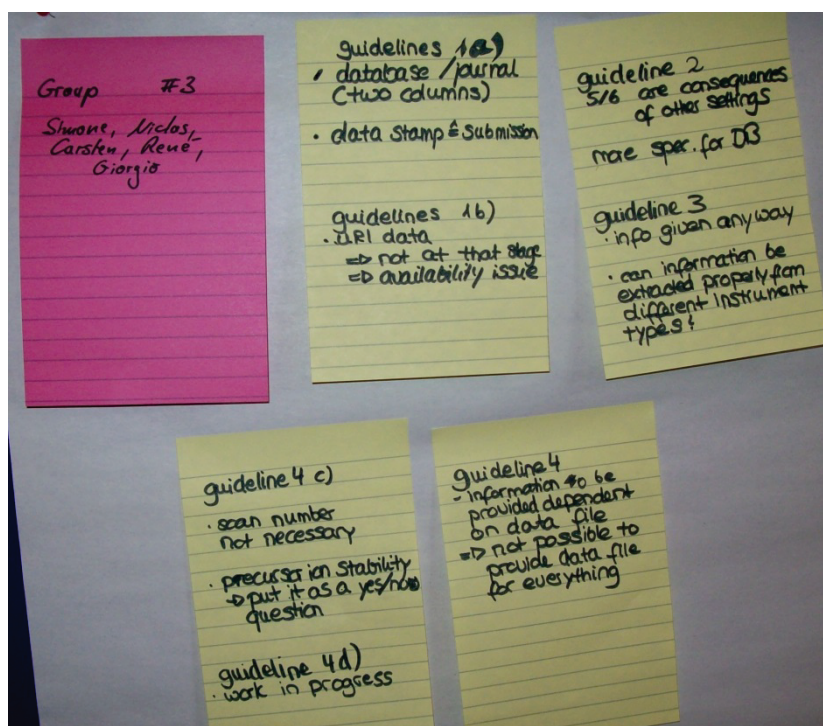 Group #3
Simone, Niclas,
Carsten, René,
Giorgio
guidelines 1a)
· database / journal
(two columns)
· data stamp ≙ submission
guidelines 1b)
· URI data
=> not at that stage
=> availability issue
guideline 2
5/6 are consequences
of other settings
more spec. for DB
guideline 3
· info given anyway
· can information be
extracted properly from
different instrument
types?
guideline 4 c)
· scan number
not necessary
· precursor ion stability
-> put it as a yes/no
question
guideline 4d)
· work in progress
guideline 4
- information to be
provided dependent
on data file
=> not possible to
provide data file
for everything